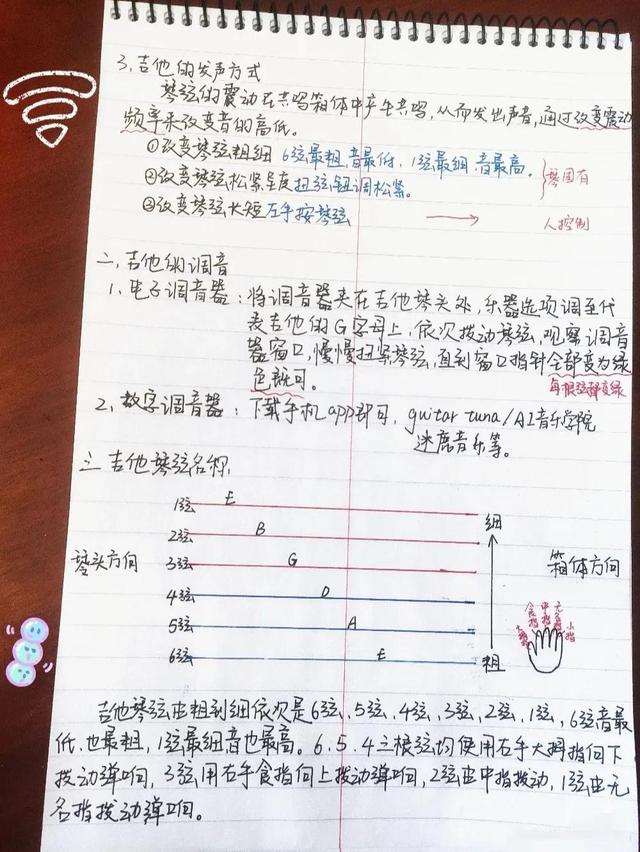 3.吉他的发声方式
琴弦的震动在共鸣箱体中产生共鸣,从而发出声音,通过改变震动
频率来改变音的高低。
①改变琴弦粗细 6弦最粗,音最低,1弦最细,音最高。
②改变琴弦松紧程度 扭弦钮调松紧。
琴固有
③改变琴弦长短 左手按琴弦
人控制
二、吉他的调音
1、电子调音器:将调音器夹在吉他琴头处,乐器选项调至代
表吉他的G字母上,依次拨动琴弦,观察调音
器窗口,慢慢扭紧琴弦,直到窗口指针全部变为绿
色既可。
每根弦都变绿
2、数字调音器:下载手机app即可,guitar tuna/AI音乐学院
迷鹿音乐等。
三 吉他琴弦名称
1弦 E
细
2弦 B
琴头方向
3弦 G
箱体方向
4弦 D
5弦 A
6弦 E
粗
大指 食指 中指 无名指 小指
吉他琴弦由粗到细依次是6弦、5弦、4弦、3弦、2弦、1弦,6弦音最
低,也最粗,1弦最细音也最高。6.5.4三根弦均使用右手大拇指向下
拨动弹响,3弦用右手食指向上拨动弹响,2弦由中指拨动,1弦由无
名指拨动弹响。